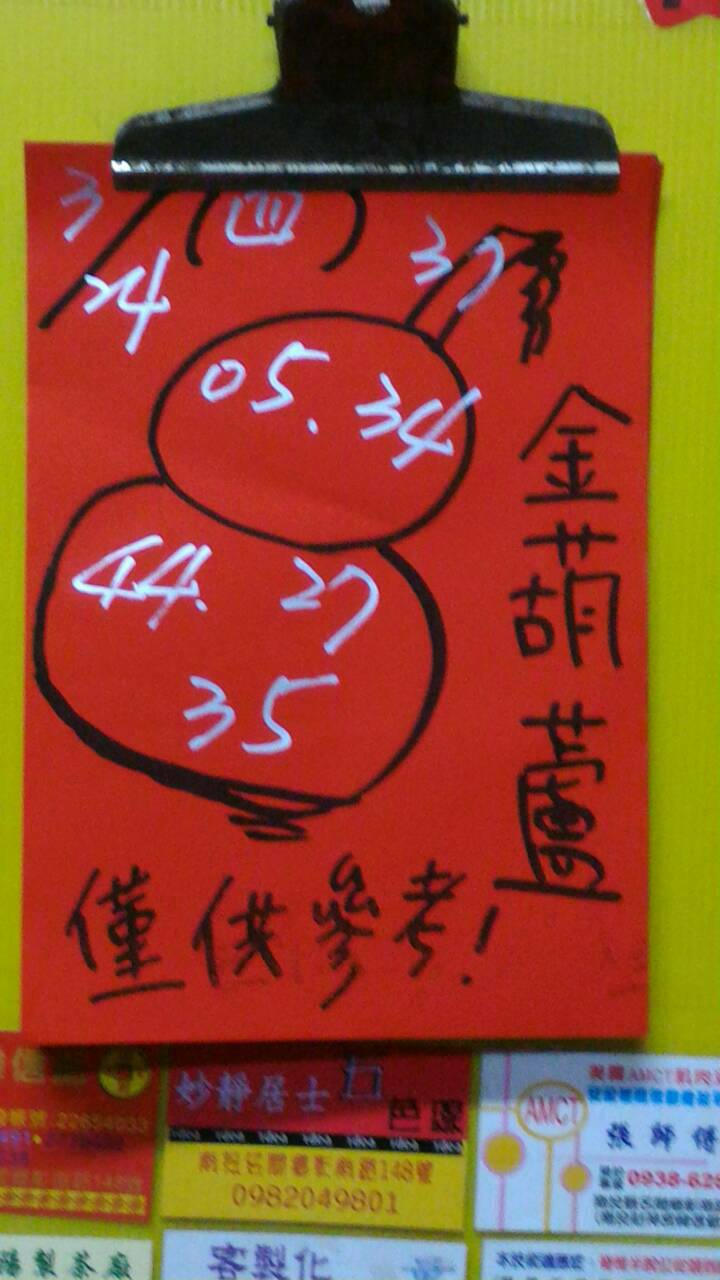 3/24(四)
37
05. 34
44. 27
35
金葫蘆
僅供參考!
妙靜居士
148號
0982049801
AMCT
張師傅
0938-628
製茶廠
客製化